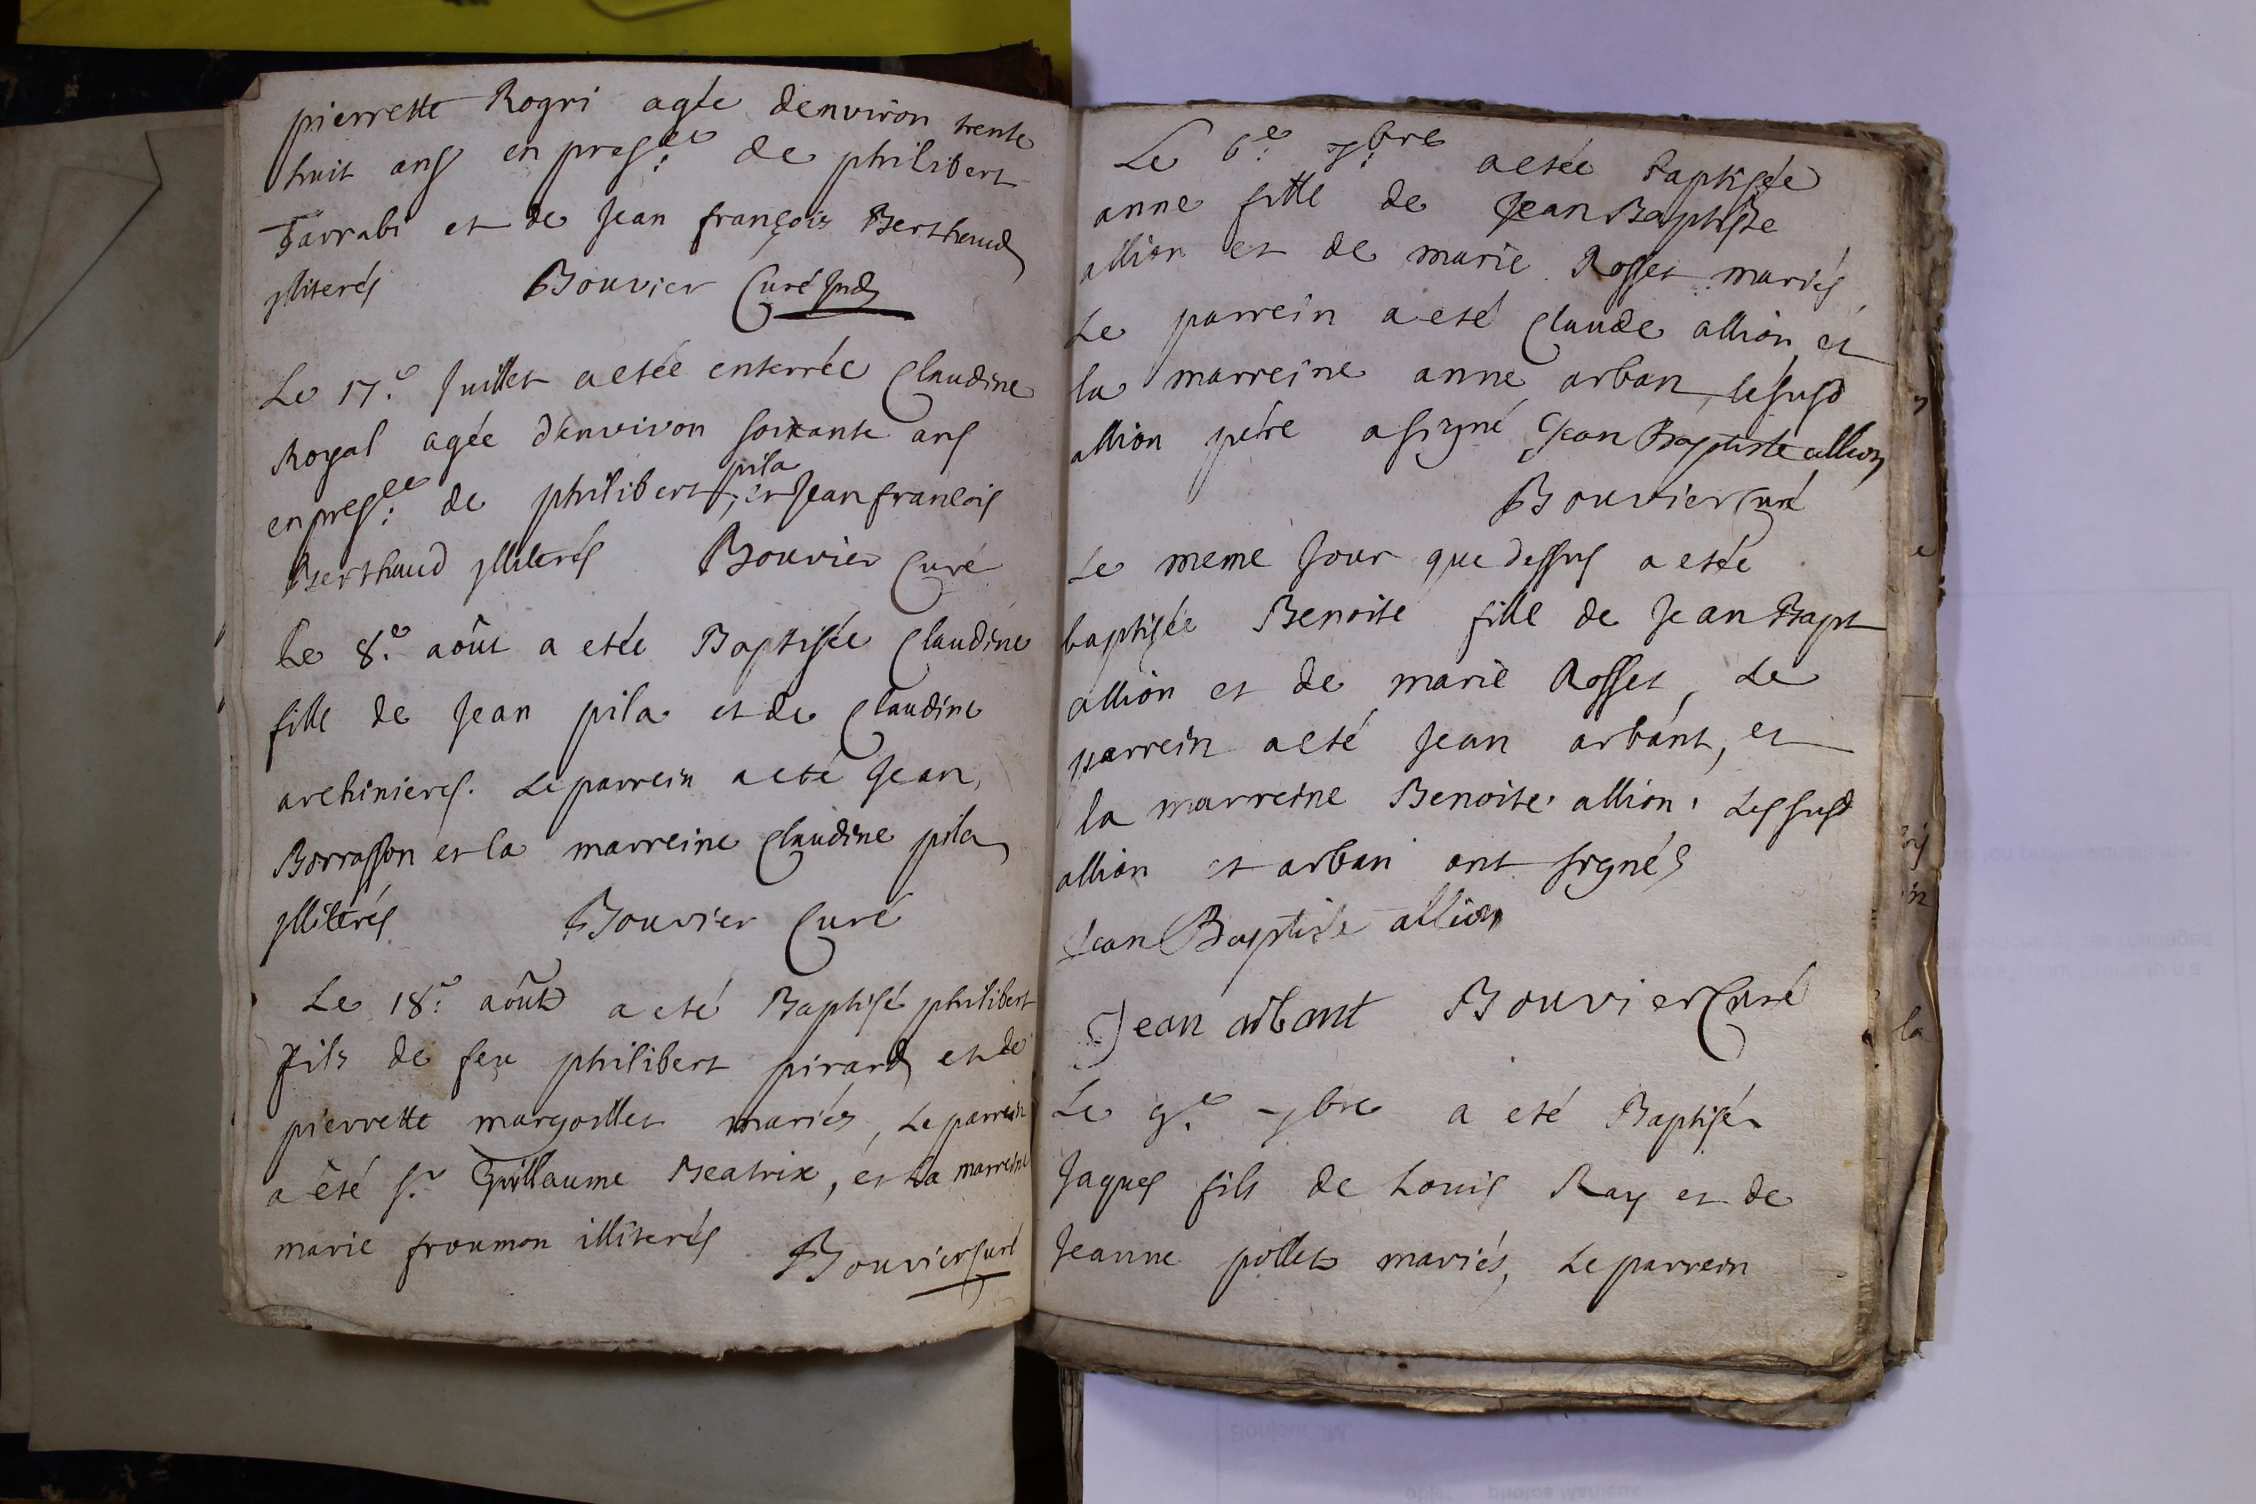 pierrette Rogri agée denviron trente
huit ans en presce: de philibert
Tarrabi et de Jean françois Berthaud
ylliterés Bouvier Curé
Le 17.e Juillet a etée enterrée Claudine
Royal agée d'environ soixante ans
en presce: de philibert pila, et Jean francois
Berthaud ylliterés Bouvier Curé
Le 8.e août a etée Baptisée Claudine
fille de Jean pila et de Claudine
archinieres. Le parrein a eté Jean
Borrasson et la marreine Claudine pila
ylliterés Bouvier Curé
Le 18.e août a eté Baptisé philibert
fils de feu philibert pirard et de
pierrette margoillet mariés, Le parrein
a êté Sr. Guillaume Beatrix, et La marreine
marie froumon illiterés
Bouvier Curé
Le 6.e 7.bre a etée baptisée
anne fille de Jean Baptiste
allion et de marie Rosset mariés
Le parrein a eté Claude allion, et
la marreine anne arban, le susd
allion père a signé Jean Baptiste allion
Bouvier Curé
Le meme Jour que dessus a etée
baptisée Benoite fille de Jean Bapt
allion et de marie Rosset, Le
parrein a eté Jean arbant, et
la marreine Benoite allion, Les susd
allion et arban ont signés
Jean Baptiste allion
Jean arbant Bouvier Curé
Le 9.e 7bre a eté Baptisé
Jaques fils de Louis Ray et de
Jeanne pollet mariés, Le parrein